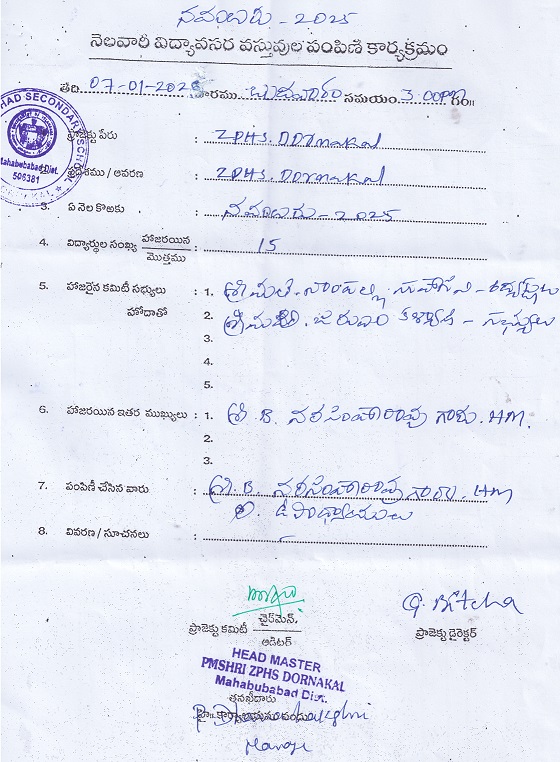 నవంబరు - 2025
నెలవారీ విద్యావసర వస్తువుల పంపిణీ కార్యక్రమం
తేది. 07-01-2026 వారము. బుధవారం సమయం. 3.00PM గం॥
HEAD SECONDARY SCHOOL
Mahabubabad Dist.
506381
DORNAKAL
ప్రాజెక్టు పేరు : ZPHS. DORNAKAL
ప్రదేశము / ఆవరణ : ZPHS. DORNAKAL
3. ఏ నెల కొఱకు : నవంబరు - 2025
4. విద్యార్థుల సంఖ్య హాజరయిన / మొత్తము : 15
5. హాజరైన కమిటీ సభ్యులు : 1. శ్రీమతి.
హోదాతో 2. శ్రీమతి. - సభ్యులు
3.
4.
5.
6. హాజరయిన ఇతర ముఖ్యులు : 1. శ్రీ B. నరసింహారావు గారు. HM.
2.
3.
7. పంపిణీ చేసిన వారు : శ్రీ. B నరసింహారావు గారు. HM
ఉపాధ్యాయులు
8. వివరణ / సూచనలు : -
ప్రాజెక్టు కమిటీ చైర్‌మెన్. / ఆడిటర్
ప్రాజెక్టు డైరెక్టర్
HEAD MASTER
PMSHRI ZPHS DORNAKAL
Mahabubabad Dist.
తనఖీదారు